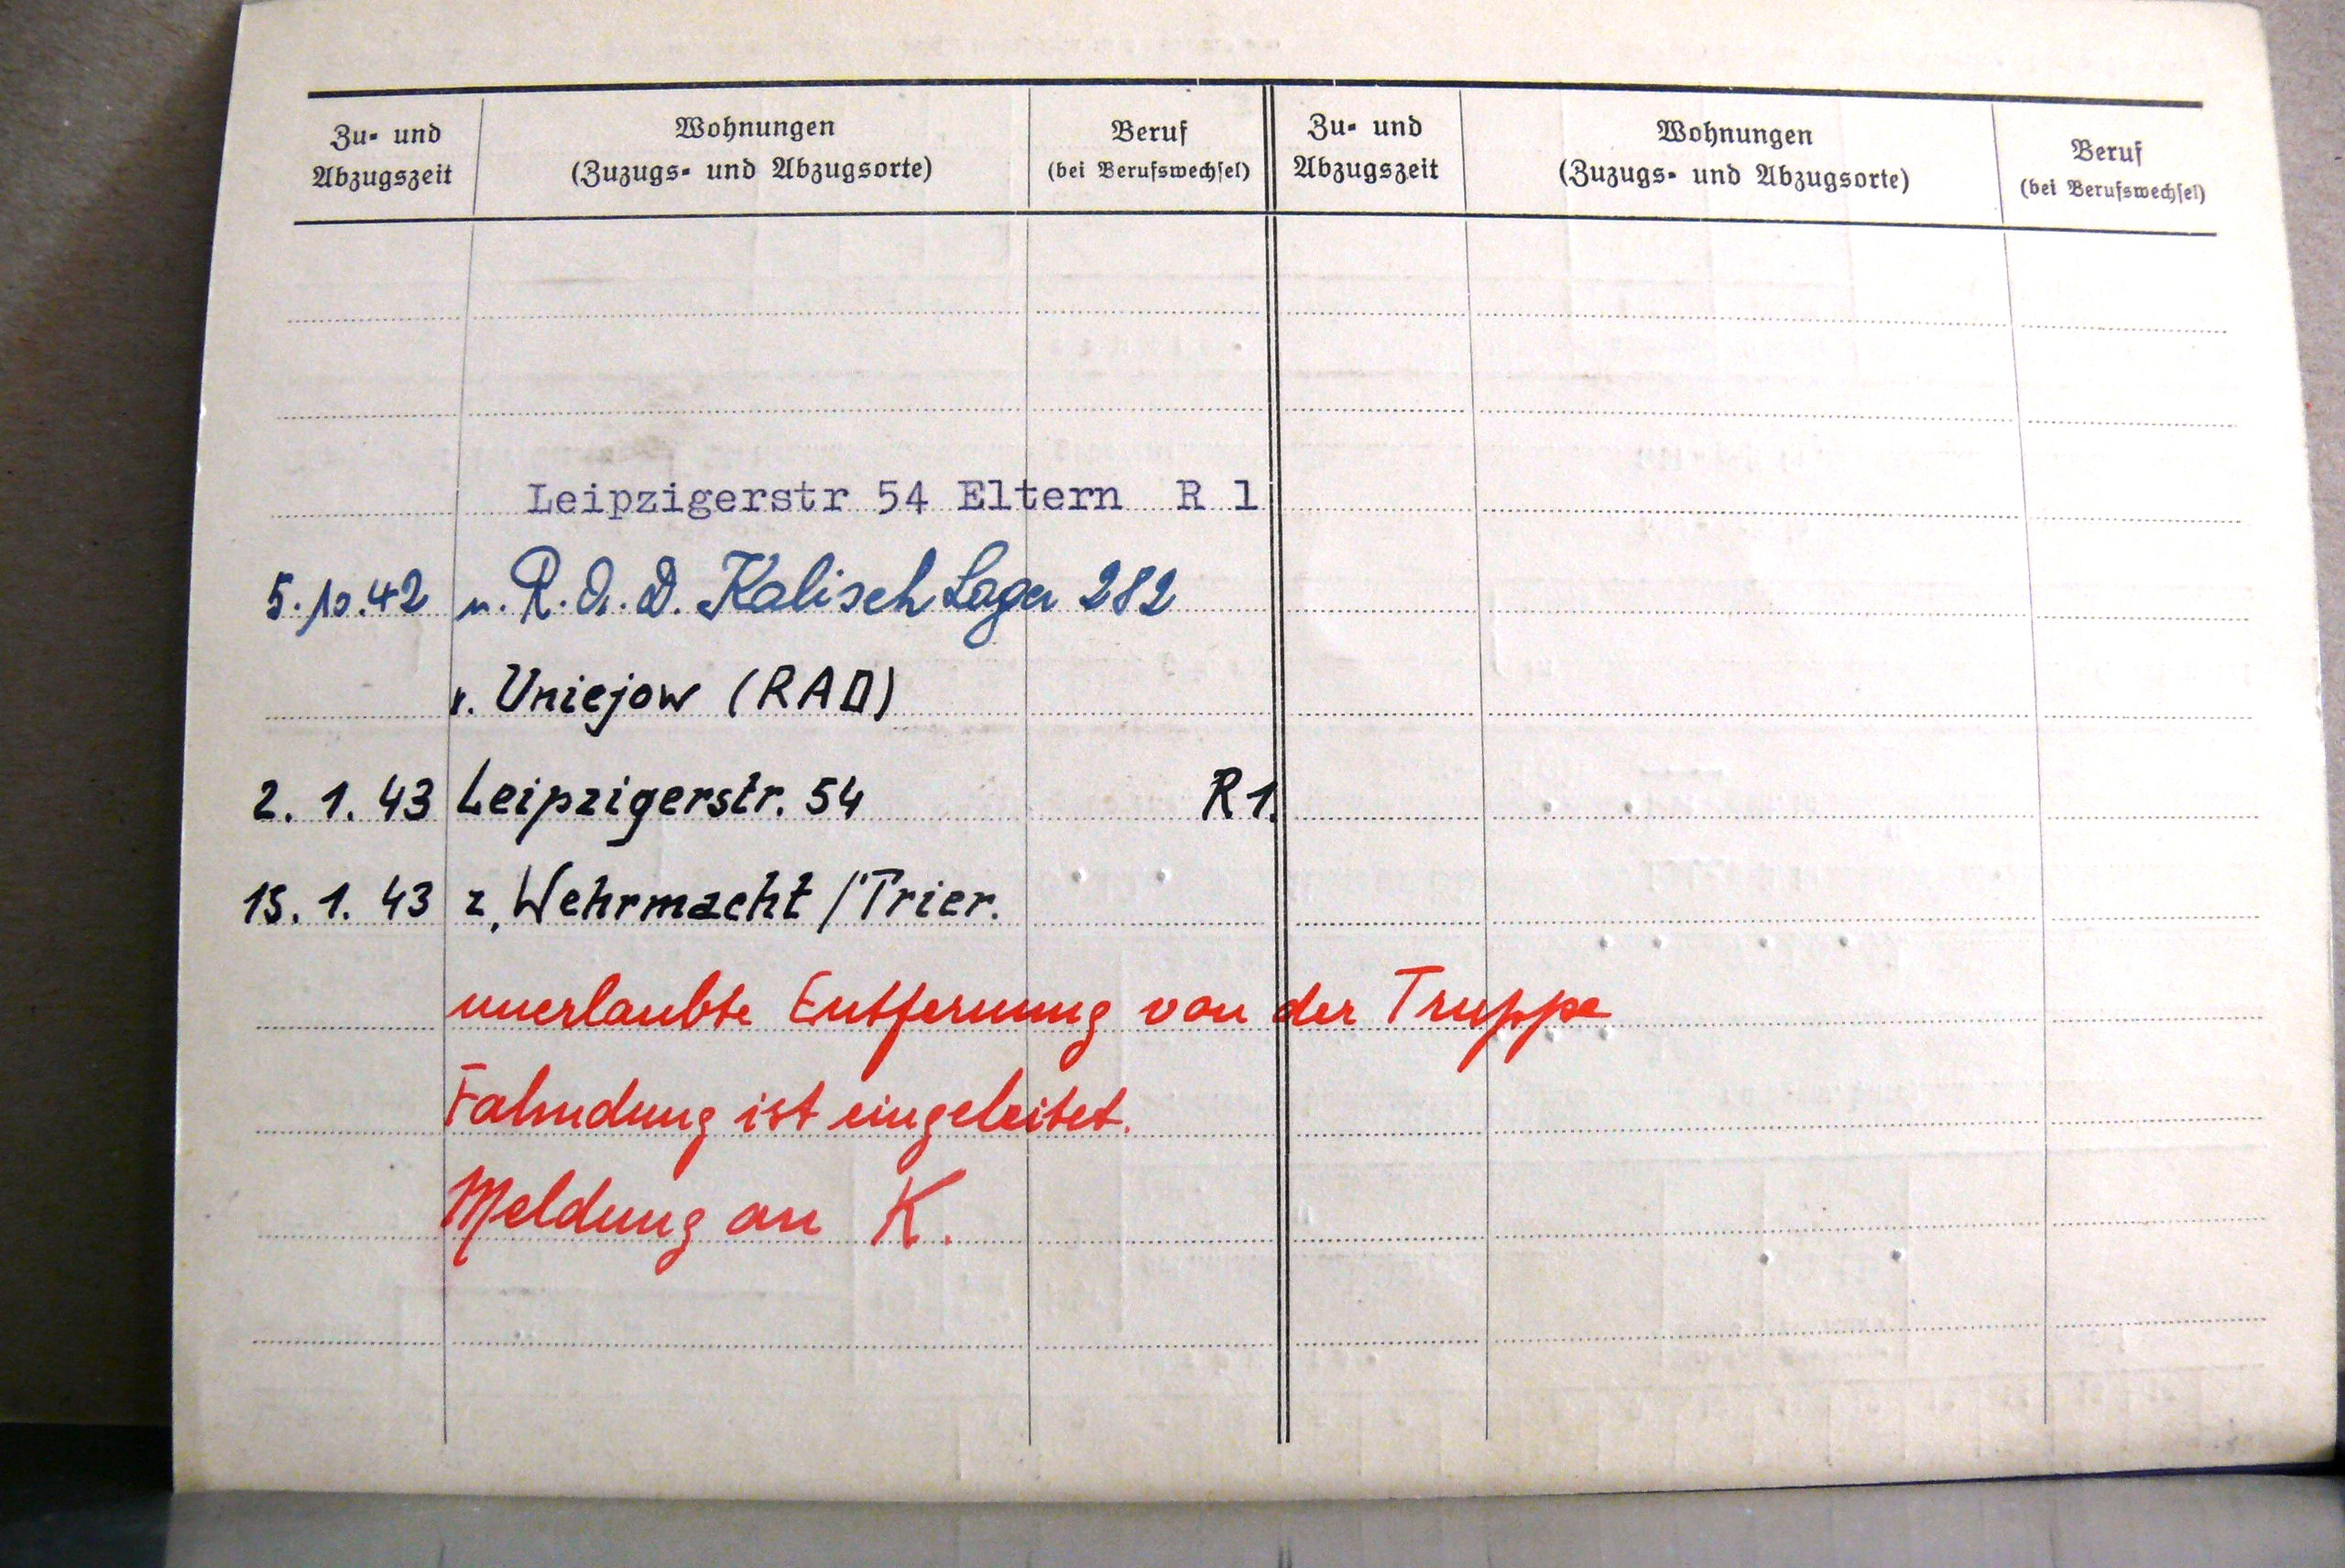 Zu- und Abzugszeit
Wohnungen
(Zuzugs- und Abzugsorte)
Beruf
(bei Berufswechsel)
Zu- und Abzugszeit
Wohnungen
(Zuzugs- und Abzugsorte)
Beruf
(bei Berufswechsel)
Leipzigerstr 54 Eltern R 1
5.10.42 n. R.A.D. Kalisch Lager 282
v. Uniejow (RAD)
2. 1. 43 Leipzigerstr. 54 R 1.
15. 1. 43 z. Wehrmacht / Trier.
unerlaubte Entfernung von der Truppe
Fahndung ist eingeleitet.
Meldung an K.